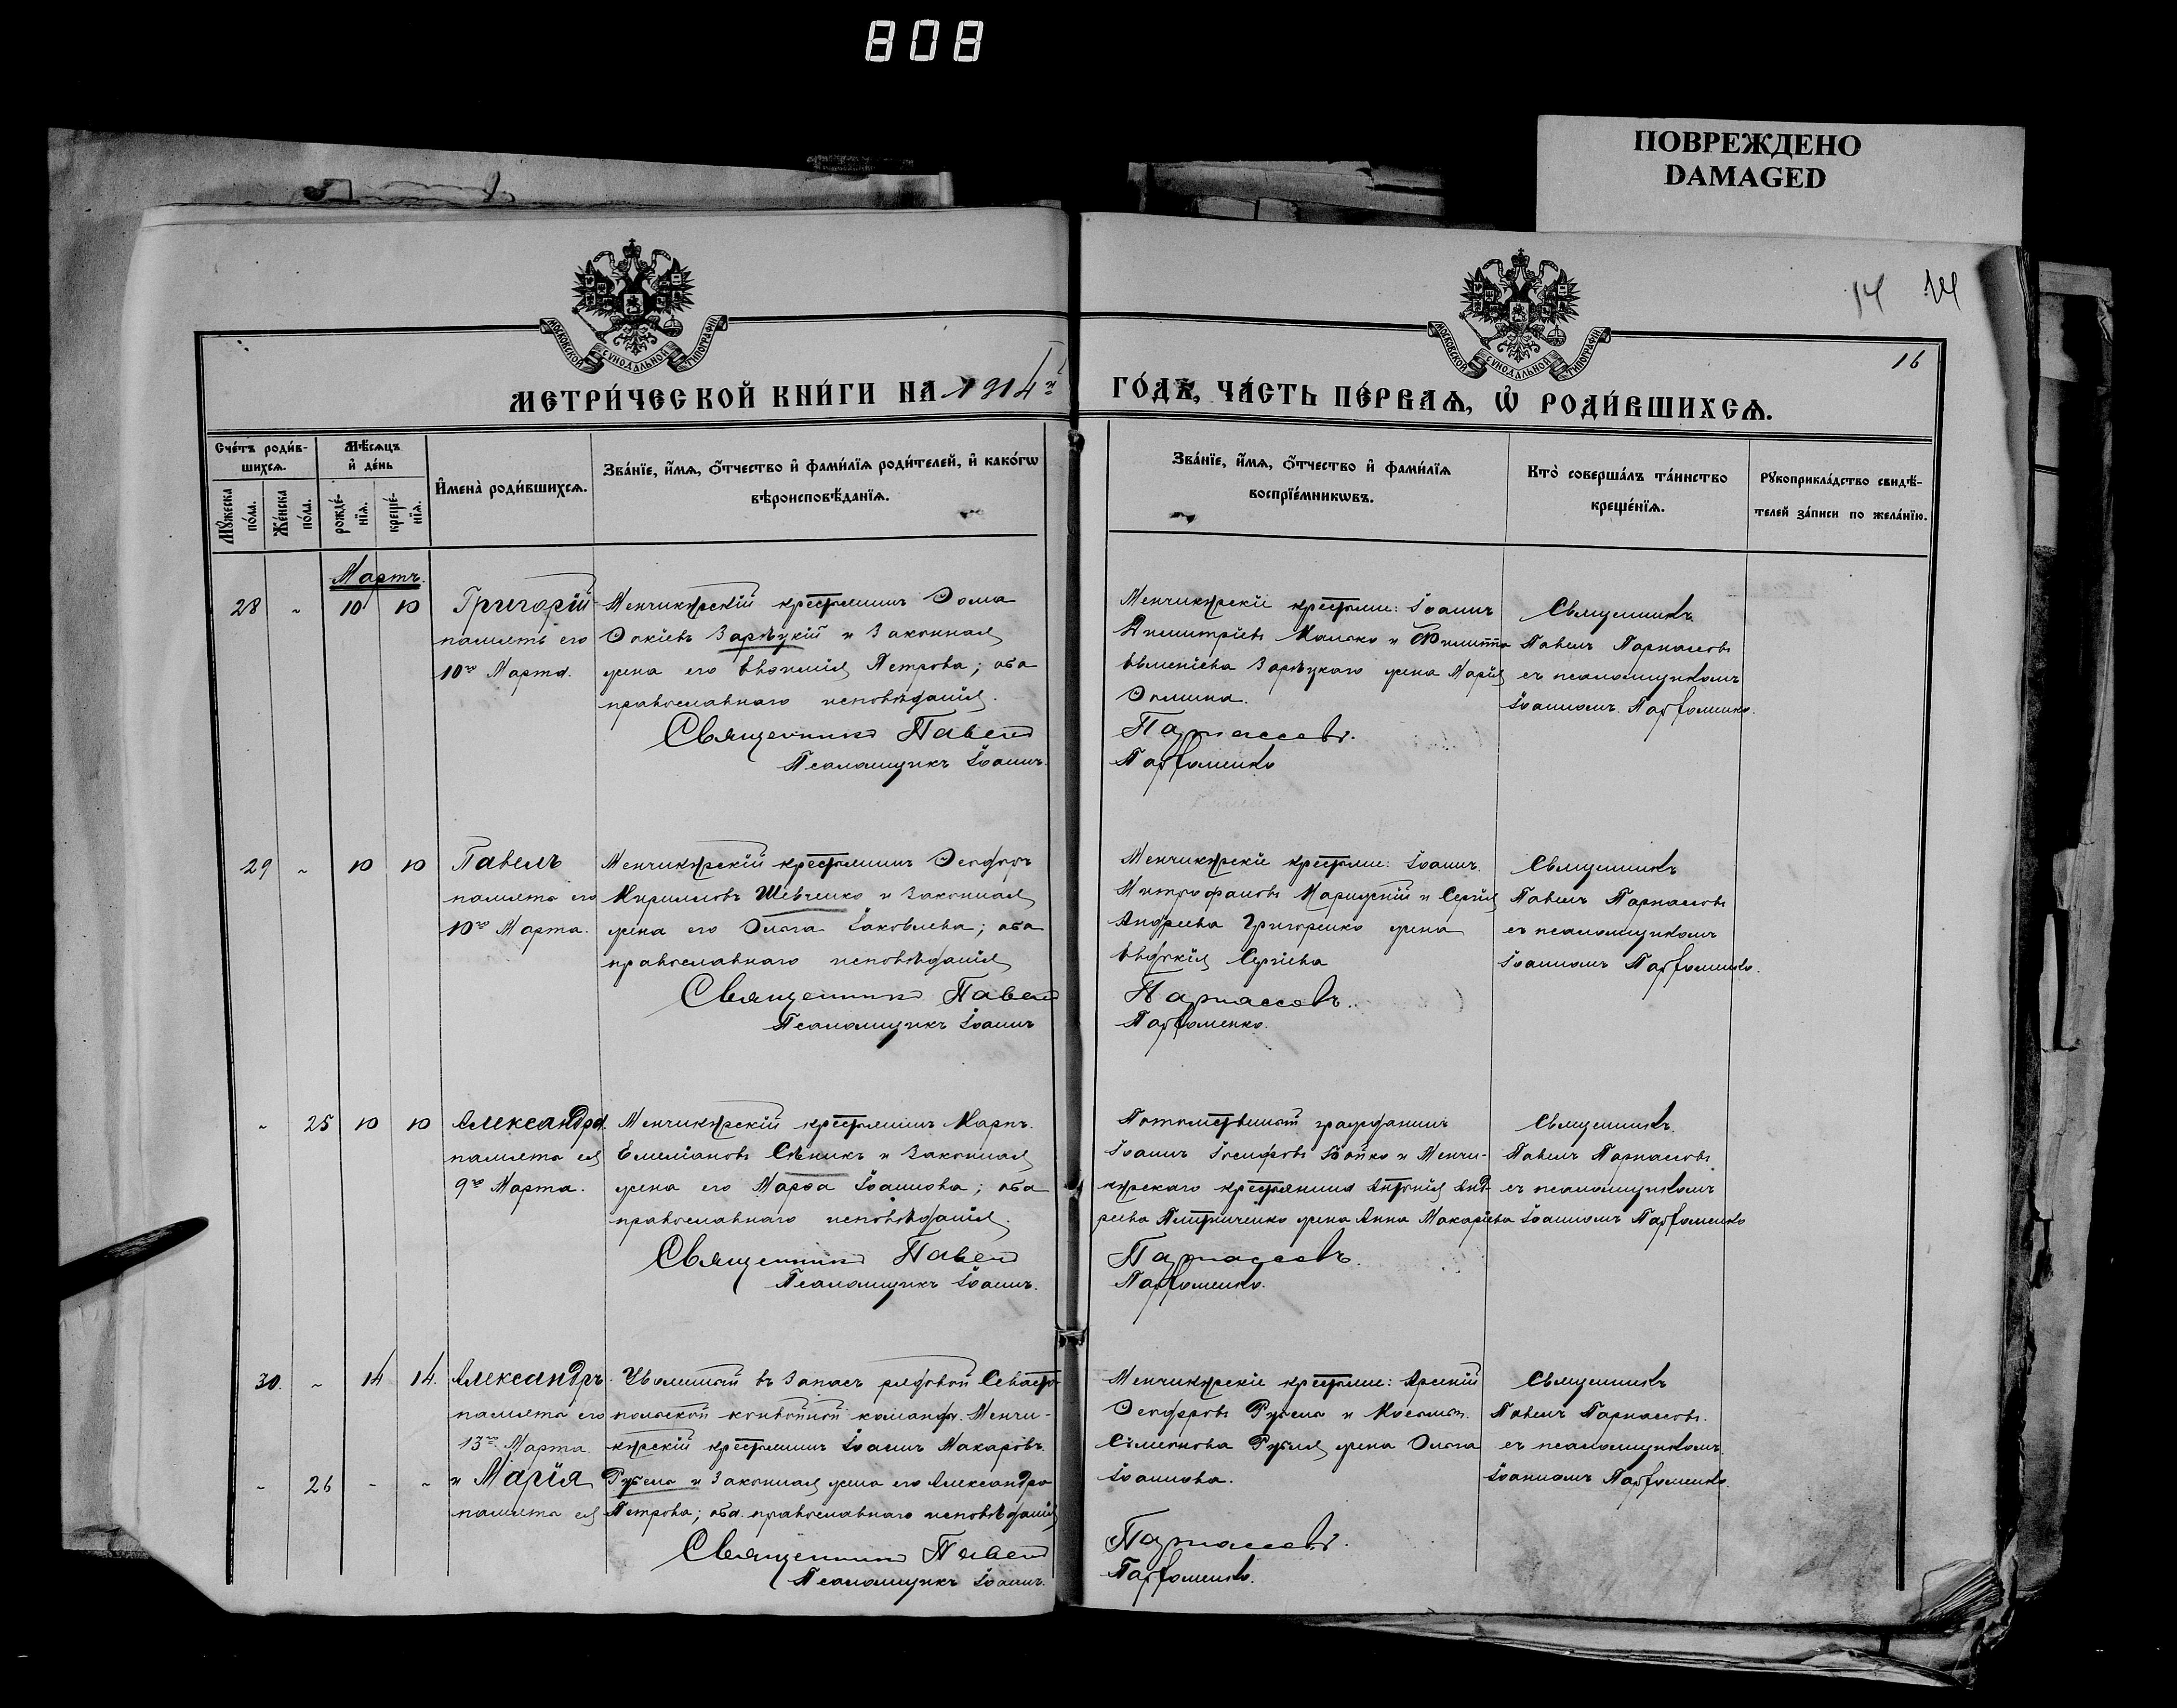 808
ПОВРЕЖДЕНО
DAMAGED
14 14
16
МОСКОВСКОЙ СѴНОДАЛЬНОЙ ТИПОГРАФІИ
МОСКОВСКОЙ СѴНОДАЛЬНОЙ ТИПОГРАФІИ
МЕТРИ́ЧЕСКОЙ КНИ́ГИ НА 1914й ГО́ДЪ, ЧА́СТЬ ПЕ́РВАѦ, Ѡ҆ РОДИ́ВШИХСѦ.
Сче́тъ роди́в-
шихсѧ.
Мѣ́сѧцъ
и҆ де́нь
И҆мена̀ роди́вшихсѧ.
Зва́нїе, и҆́мѧ, ѻ҆́тчество и҆ фами́лїѧ роди́телей, и҆ како́гѡ
вѣроисповѣ́данїѧ.
Зва́нїе, и҆́мѧ, ѻ҆́тчество и҆ фами́лїѧ
воспрїе́мникѡвъ.
Кто̀ соверша́лъ та́инство
креще́нїѧ.
Рꙋкоприкла́дство свидѣ́-
телей за́писи по жела́нїю.
Мꙋ́жеска
по́ла.
Же́нска
по́ла.
рожде́-
нїѧ.
креще́-
нїѧ.
Мартъ.
28 " 10 10 Григорій
память его
10го Марта.
Менчикурскій крестьянинъ Ѳома
Ѳокіевъ Зарѣцкій и законная
жена его Евѳимія Петрова; оба
православнаго исповѣданія.
Священникъ Павелъ
Псаломщикъ Іоаннъ
Менчикурскіе крестьяне: Іоаннъ
Димитріевъ и Филиппа
Евменіева Зарѣцкаго жена Марія
Ѳомина.
Парнассовъ.
Парфоменко
Священникъ
Павелъ Парнассовъ
съ псаломщикомъ
Іоанномъ Парфоменко.
29 " 10 10 Павелъ
память его
10го Марта.
Менчикурскій крестьянинъ Ѳеодоръ
Кирилловъ Шевченко и законная
жена его Ольга Іаковлева; оба
православнаго исповѣданія
Священникъ Павелъ
Псаломщикъ Іоаннъ
Менчикурскіе крестьяне: Іоаннъ
Митрофановъ и Сергія
Андреева Григоренко жена
Евдокія Сергіева
Парнассовъ.
Парфоменко.
Священникъ
Павелъ Парнассовъ
съ псаломщикомъ
Іоанномъ Парфоменко.
" 25 10 10 Александра
память ея
9го Марта.
Менчикурскій крестьянинъ Карпъ
Емеліановъ Сѣникъ и законная
жена его Марѳа Іоаннова; оба
православнаго исповѣданія.
Священникъ Павелъ
Псаломщикъ Іоаннъ.
Потомственный гражданинъ
Іоаннъ Іосифовъ Бойко и Менчи-
курскаго крестьянина Антонія Анд-
реева жена Анна Макаріева
Парнассовъ.
Парфоменко.
Священникъ
Павелъ Парнассовъ
съ псаломщикомъ
Іоанномъ Парфоменко
30. " 14 14. Александръ
память его
13го Марта
" 26 - " и Марія
память ея
Уволенный въ запасъ рядовой Севасто-
польской конвойной команды Менчи-
курскій крестьянинъ Іоаннъ Макаровъ
и законная жена его Александра
Петрова; оба православнаго исповѣданія
Священникъ Павелъ
Псаломщикъ Іоаннъ.
Менчикурскіе крестьяне: Арсеній
Ѳеодоровъ и Косьмы
Сѵмеонова жена Ольга
Іоаннова.
Парнассовъ.
Парфоменко.
Священникъ
Павелъ Парнассовъ.
съ псаломщикомъ
Іоанномъ Парфоменко.